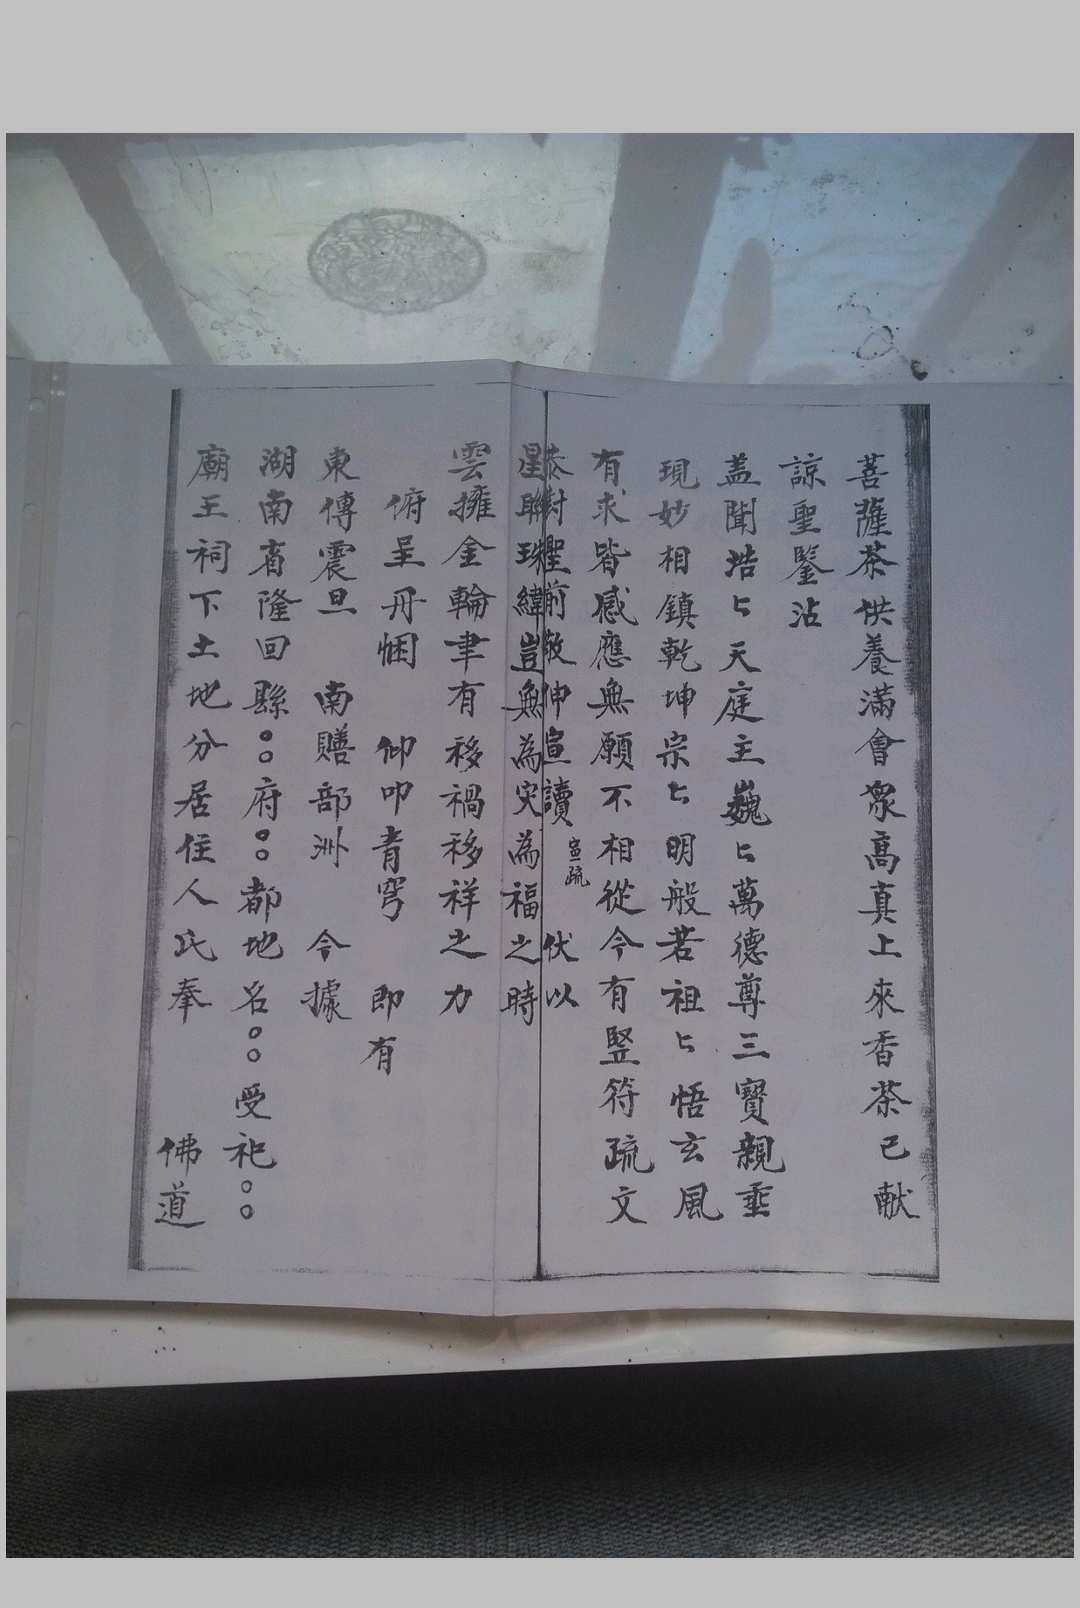 菩薩茶供養滿會眾高真上來香茶已献
諒聖鑒沾
盖聞浩〻天庭主巍〻萬德尊三寶親垂
現妙相鎮乾坤宗〻明般若祖〻悟玄風
有求皆感應無願不相從今有竪符疏文
恭對聖前敬伸宣讀 宣疏 伏以
星聯珠緯豈無為灾為福之時
雲擁金輪聿有移禍移祥之力
俯呈丹悃 仰叩青穹 即有
東傳震旦 南贍部洲 今據
湖南省隆回縣○○府○○都地名○○受祀○○
廟王祠下土地分居住人氏奉 佛道